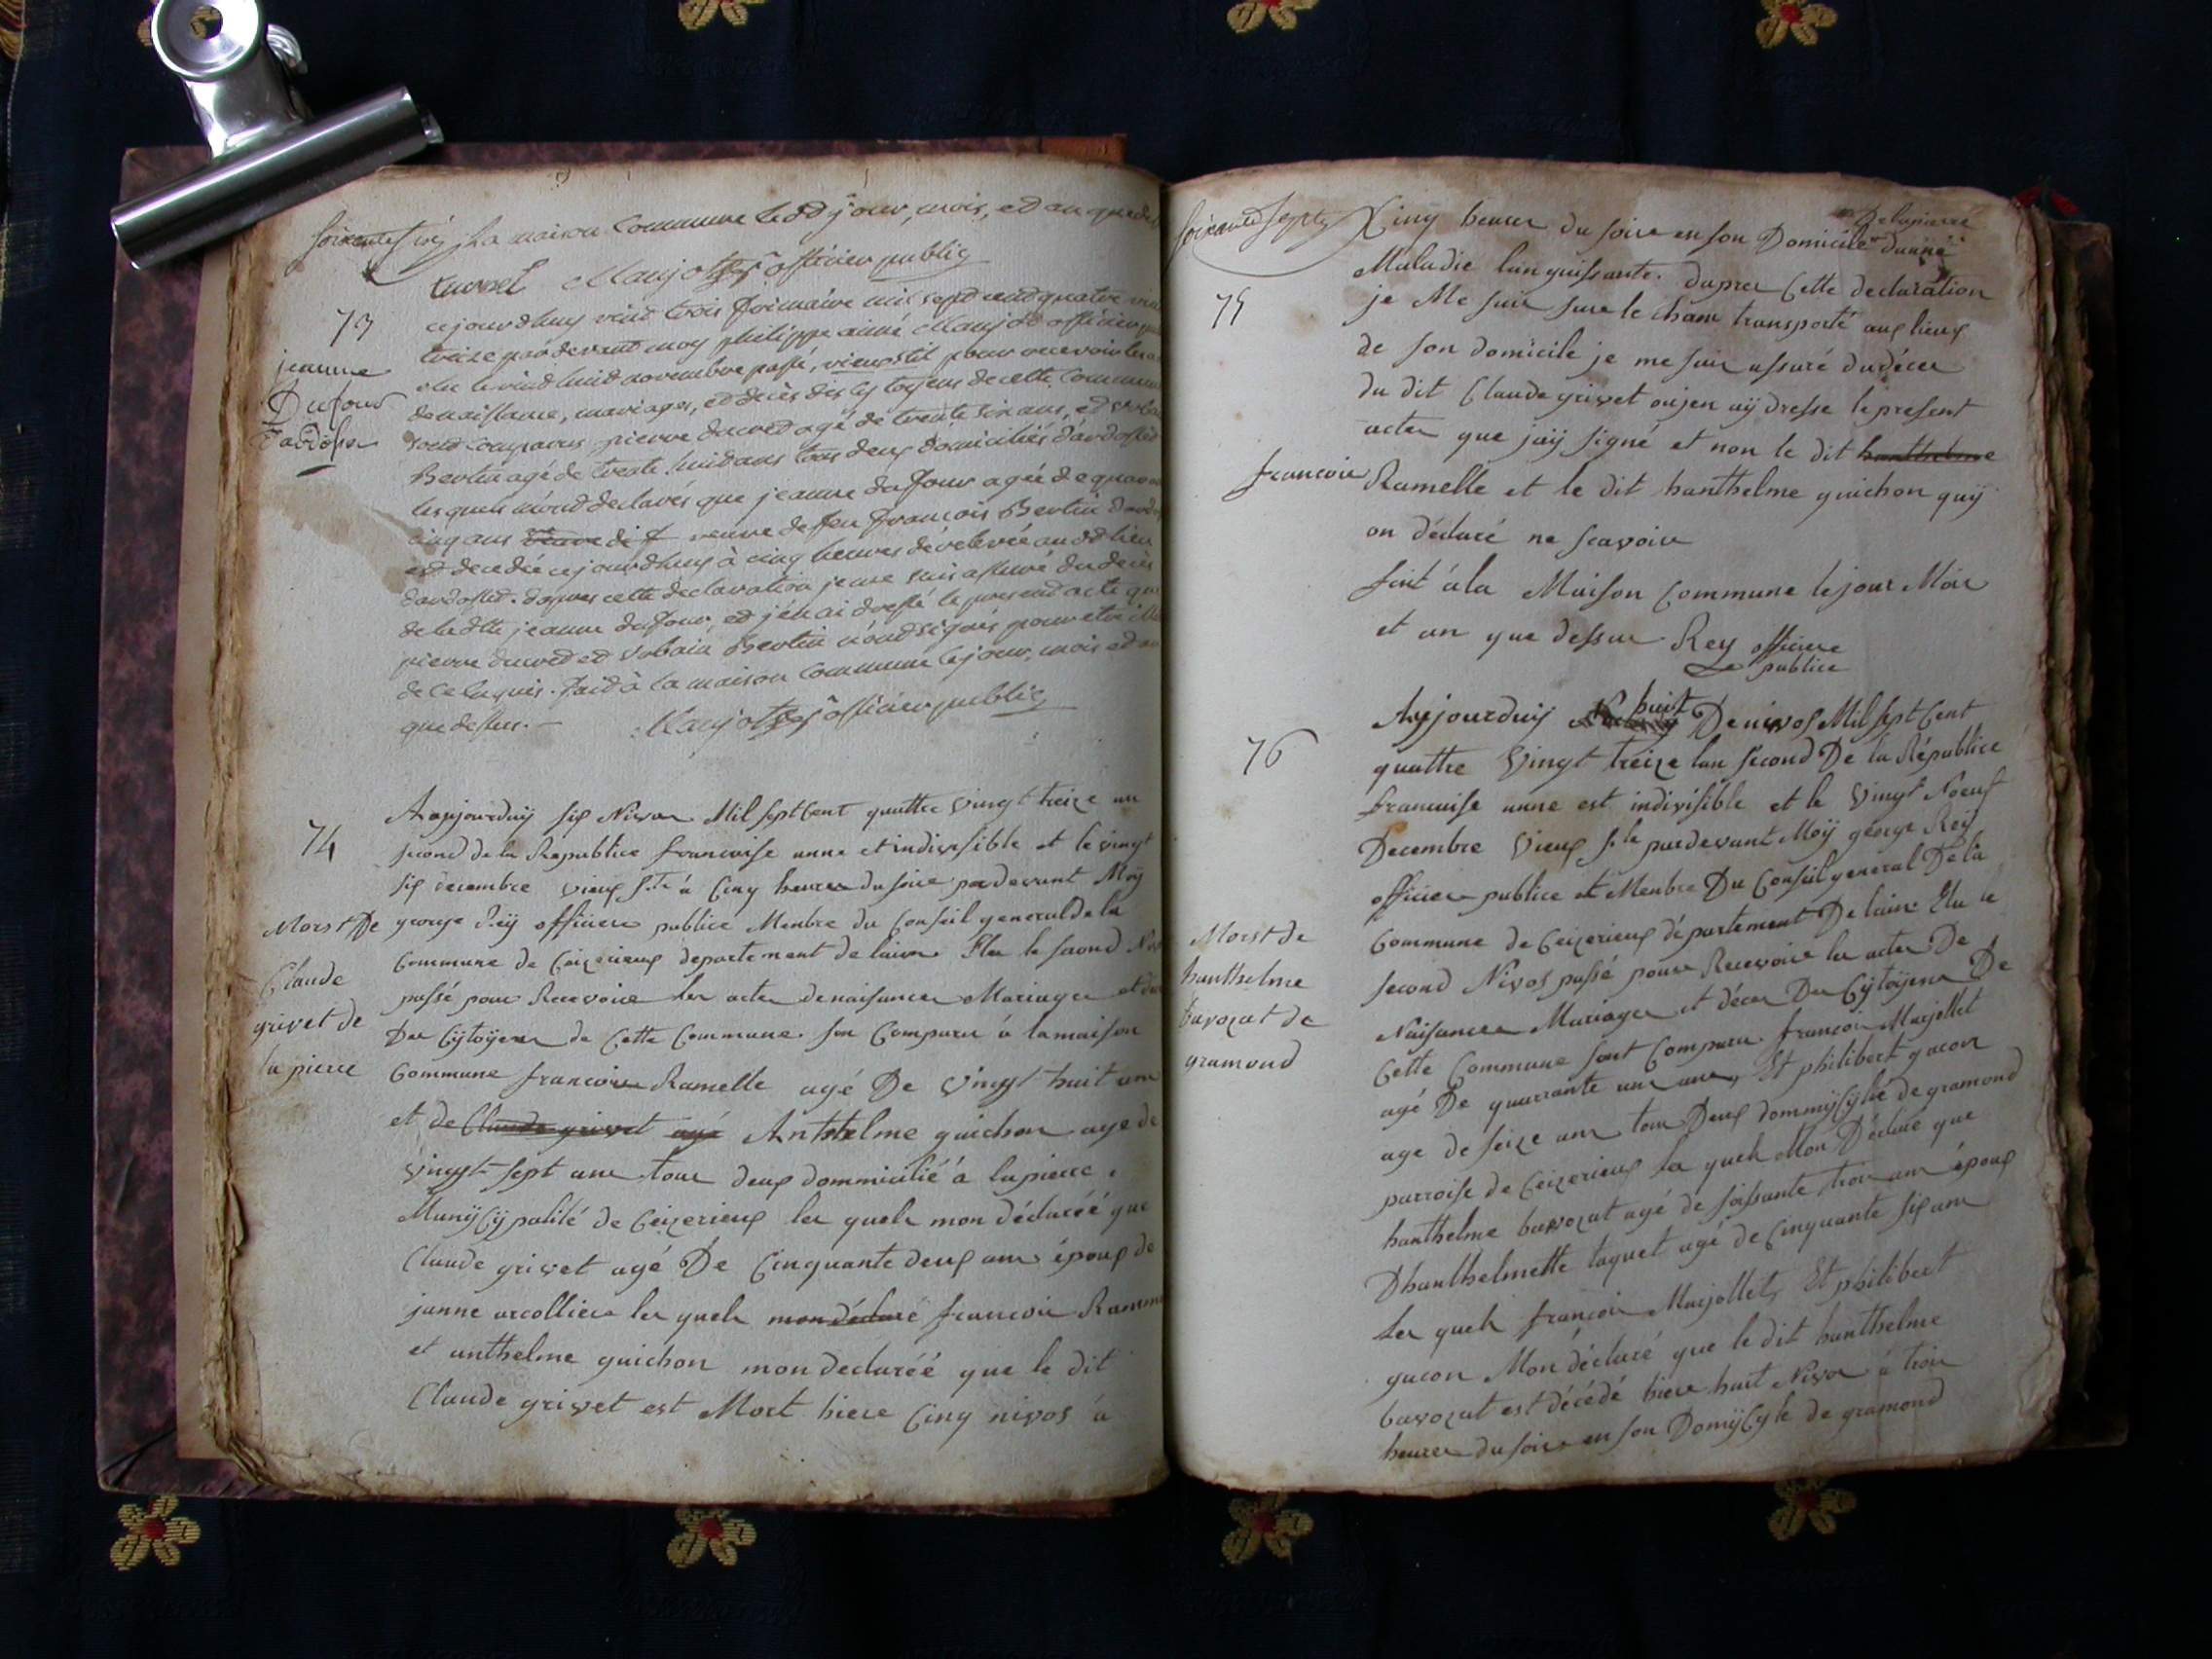 soixante six
la maison Commune led jour, mois, et an que de
Maujot officier public
73
jeanne
Dufour
ce jourdhuy vint trois frimaire mil sept cent quatre vin
treize par devant moy philippe aimé Maujot officier
elu le vint huit novembre passé, vieustil pour recevoir les
de naissance, mariages, et décès des Cytoyens de cette Commun
sont comparus pierre ducret agé de trente six ans, et urbain
Bertin agé de trente huit ans tous deux domiciliés
lesquels m'ont declarés que jeanne dufour agée de quaran
cinq ans veuve de feu françois Bertin
est decedée ce jourdhuy à cinq heures de relevée aud lieu
d'apres cette declaration je me suis assuré du decès
de ladtte jeanne dufour, et j'en ai dressé le present acte que
pierre ducret et urbain Bertin n'ont signés pour etre
de ce enquis. fait à la maison Commune le jour, mois et an
que dessus.
Maujot officier public
74
Mort De
Claude
grivet de
la pierre
Aujourduij six Nivos Mil sept Cent quattre vingt treize an
second de la Republice francoise unne et indivisible et le vingt
six decembre vieux S.te à Cinq heures du soire par devant Moÿ
george Reÿ officiere publice Menbre du Conseil general de la
Commune de Ceizerieux departement de lain Elu le second
passé pour Recevoire les actes de naisances Mariages et
Des Cÿtoÿens de Cette Commune. son Comparu à la maison
Commune francois Ramelle agé De vingt huit ans
et de Claude grivet agé Anthelme guichon age de
vingt sept ans tous deux dommicilié à lapierre
MunÿCÿpalité de Ceizerieux les quels mon déclaréé que
Claude grivet agé De Cinquante deux ans époux de
janne arcolliere les quels mon déclaré francois Ramme
et anthelme guichon mon declaréé que le dit
Claude grivet est Mort hiere Cinq nivos à
soixante sept
Cinq heures du soire en son Domicile Delapierre dunne
75
Maladie languissante. dapres Cette declaration
je Me suis sure le cham transporté aux lieux
de son domicile je me suis assuré du déces
du dit Claude grivet oujen aÿ dresse le present
actes que jaÿ signé et non le dit hanthelme
francois Ramelle et le dit hanthelme guichon quÿ
on déclaré ne scavoire
fait à la Maison Commune le jour Mois
et an que dessus Rey officiere
publice
76
Mort de
hanthelme
bavozat de
gramond
Aujourduij huit De nivos Mil sept Cent
quattre vingt treize lan second De la République
francoise unne est indivisible et le vingt Noeuf
Decembre vieux S.le pardevant Moÿ géorge Reÿ
officiere publice et Menbre Du Conseil general De la
Commune de Ceizerieux département De lain Elu le
second Nivos passé poure Recevoire les actes De
Naisances Mariages et déces Des Cÿtoÿens De
Cette Commune sont Comparu. francois Marjollet
agé De quarrante un ans, Et philibert gacon
age de seize ans tous Deux dommiÿCÿlié de gramond
parroise de Ceizerieux les quels Mon Déclaré que
hanthelme bavozat agé de soissante trois ans époux
Dhanthelmette laquet agé de Cinquante six ans
Les quels francois Marjollet, Et philibert
gacon Mon déclaré que le dit hanthelme
bavozat est décédé hiere huit Nivos à trois
heures du soire en son DomiÿCÿle de gramond